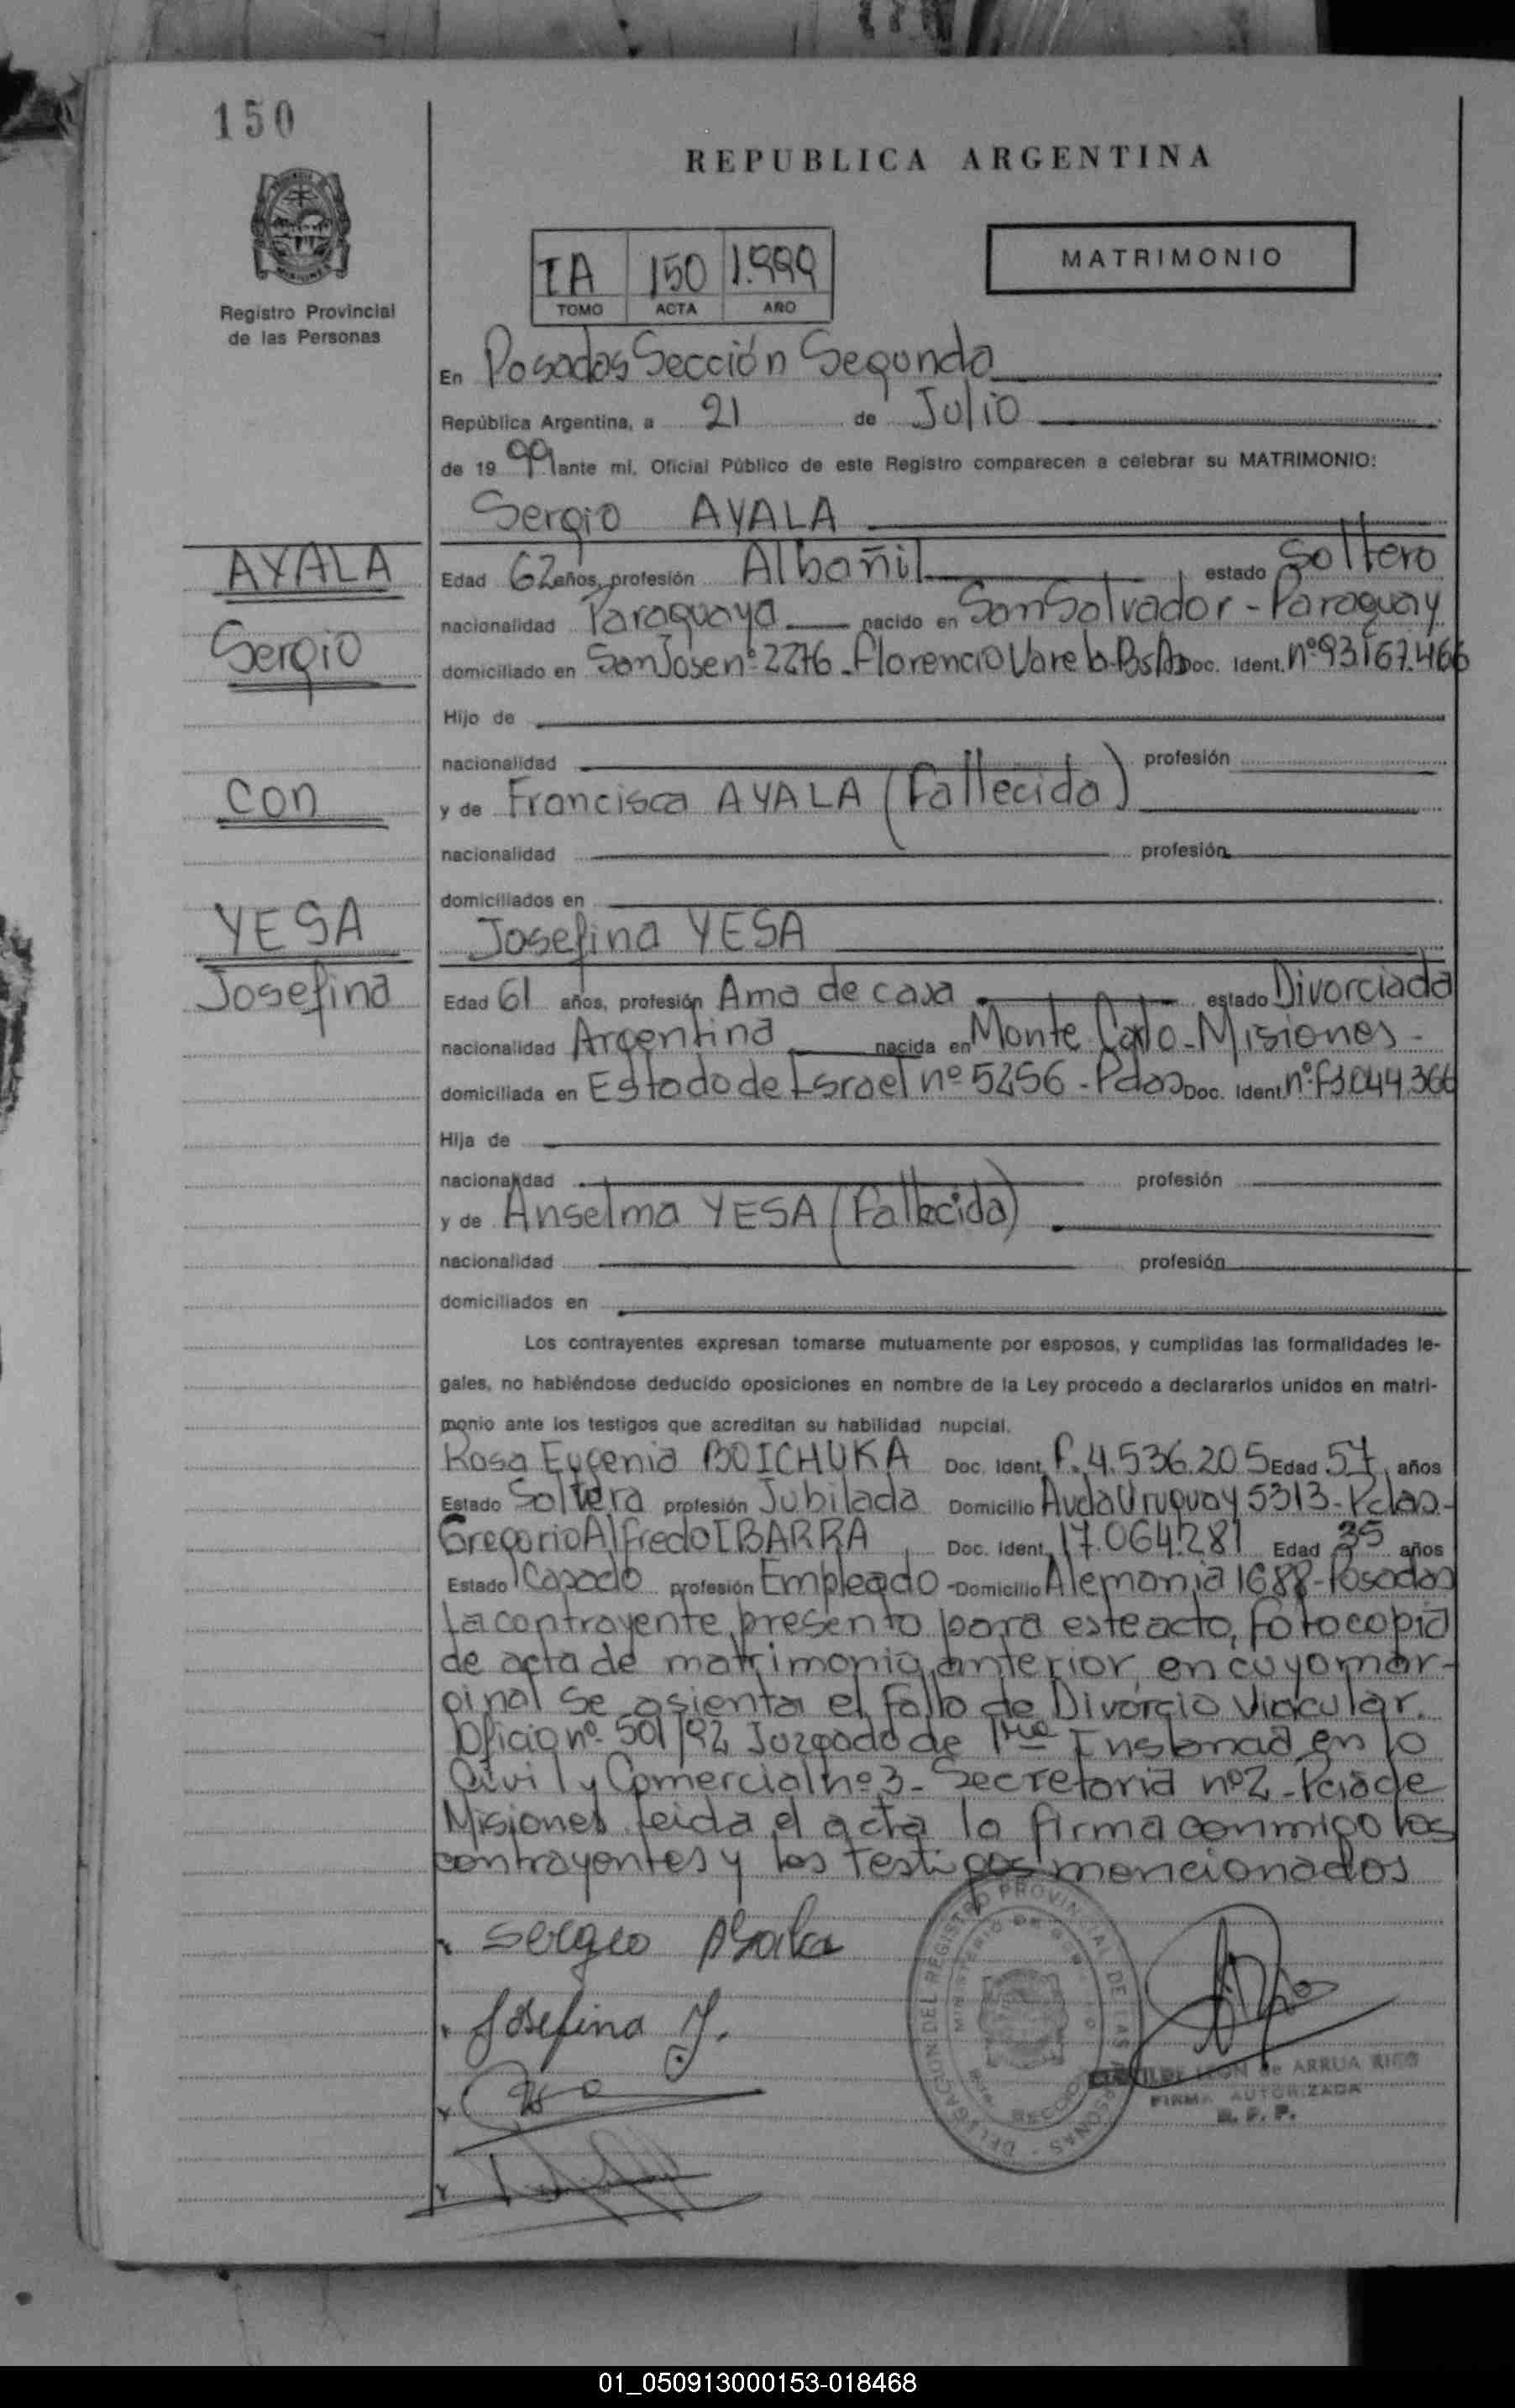 150
REPUBLICA ARGENTINA
Registro Provincial
de las Personas
IA 150 1.999
TOMO ACTA AÑO
MATRIMONIO
En Posadas Sección Segunda
República Argentina, a 21 de Julio
de 19 99 ante mi, Oficial Público de este Registro comparecen a celebrar su MATRIMONIO:
Sergio AYALA
AYALA
Sergio
con
YESA
Josefina
Edad 62 años, profesión Albañil estado Soltero
nacionalidad Paraguaya nacido en San Salvador - Paraguay
domiciliado en San Jose nº 2276 - Florencio Varela - BsAs Doc. Ident. nº 93.167.466
Hijo de
nacionalidad profesión
y de Francisca AYALA (Fallecida)
nacionalidad profesión
domiciliados en
Josefina YESA
Edad 61 años, profesión Ama de casa estado Divorciada
nacionalidad Argentina nacida en Monte Carlo - Misiones -
domiciliada en Estado de Israel nº 5256 - Pdas Doc. Ident. nº F3.044.366
Hija de
nacionalidad profesión
y de Anselma YESA (Fallecida)
nacionalidad profesión
domiciliados en
Los contrayentes expresan tomarse mutuamente por esposos, y cumplidas las formalidades le-
gales, no habiéndose deducido oposiciones en nombre de la Ley procedo a declararlos unidos en matri-
monio ante los testigos que acreditan su habilidad nupcial.
Rosa Eugenia BOICHUKA Doc. Ident. F. 4.536.205 Edad 57 años
Estado Soltera profesión Jubilada Domicilio Avda Uruguay 5313 - Pdas -
Gregorio Alfredo IBARRA Doc. Ident. 17.064.281 Edad 35 años
Estado Casado profesión Empleado - Domicilio Alemania 1688 - Posadas
La contrayente presento para este acto, fotocopia
de acta de matrimonio anterior, en cuyo mar-
ginal se asienta el fallo de Divorcio Vincular.
Oficio nº 501/92 Juzgado de 1ra Instancia en lo
Civil y Comercial nº 3 - Secretaria nº 2 - Pcia de
Misiones leida el acta la firma conmigo los
contrayentes y los testigos mencionados
Sergio Ayala
Josefina Y.
DELEGACION DEL REGISTRO PROVINCIAL DE LAS PERSONAS
MINISTERIO DE
LEON de ARRUA RIOS
FIRMA AUTORIZADA
R. P. P.
01_050913000153-018468